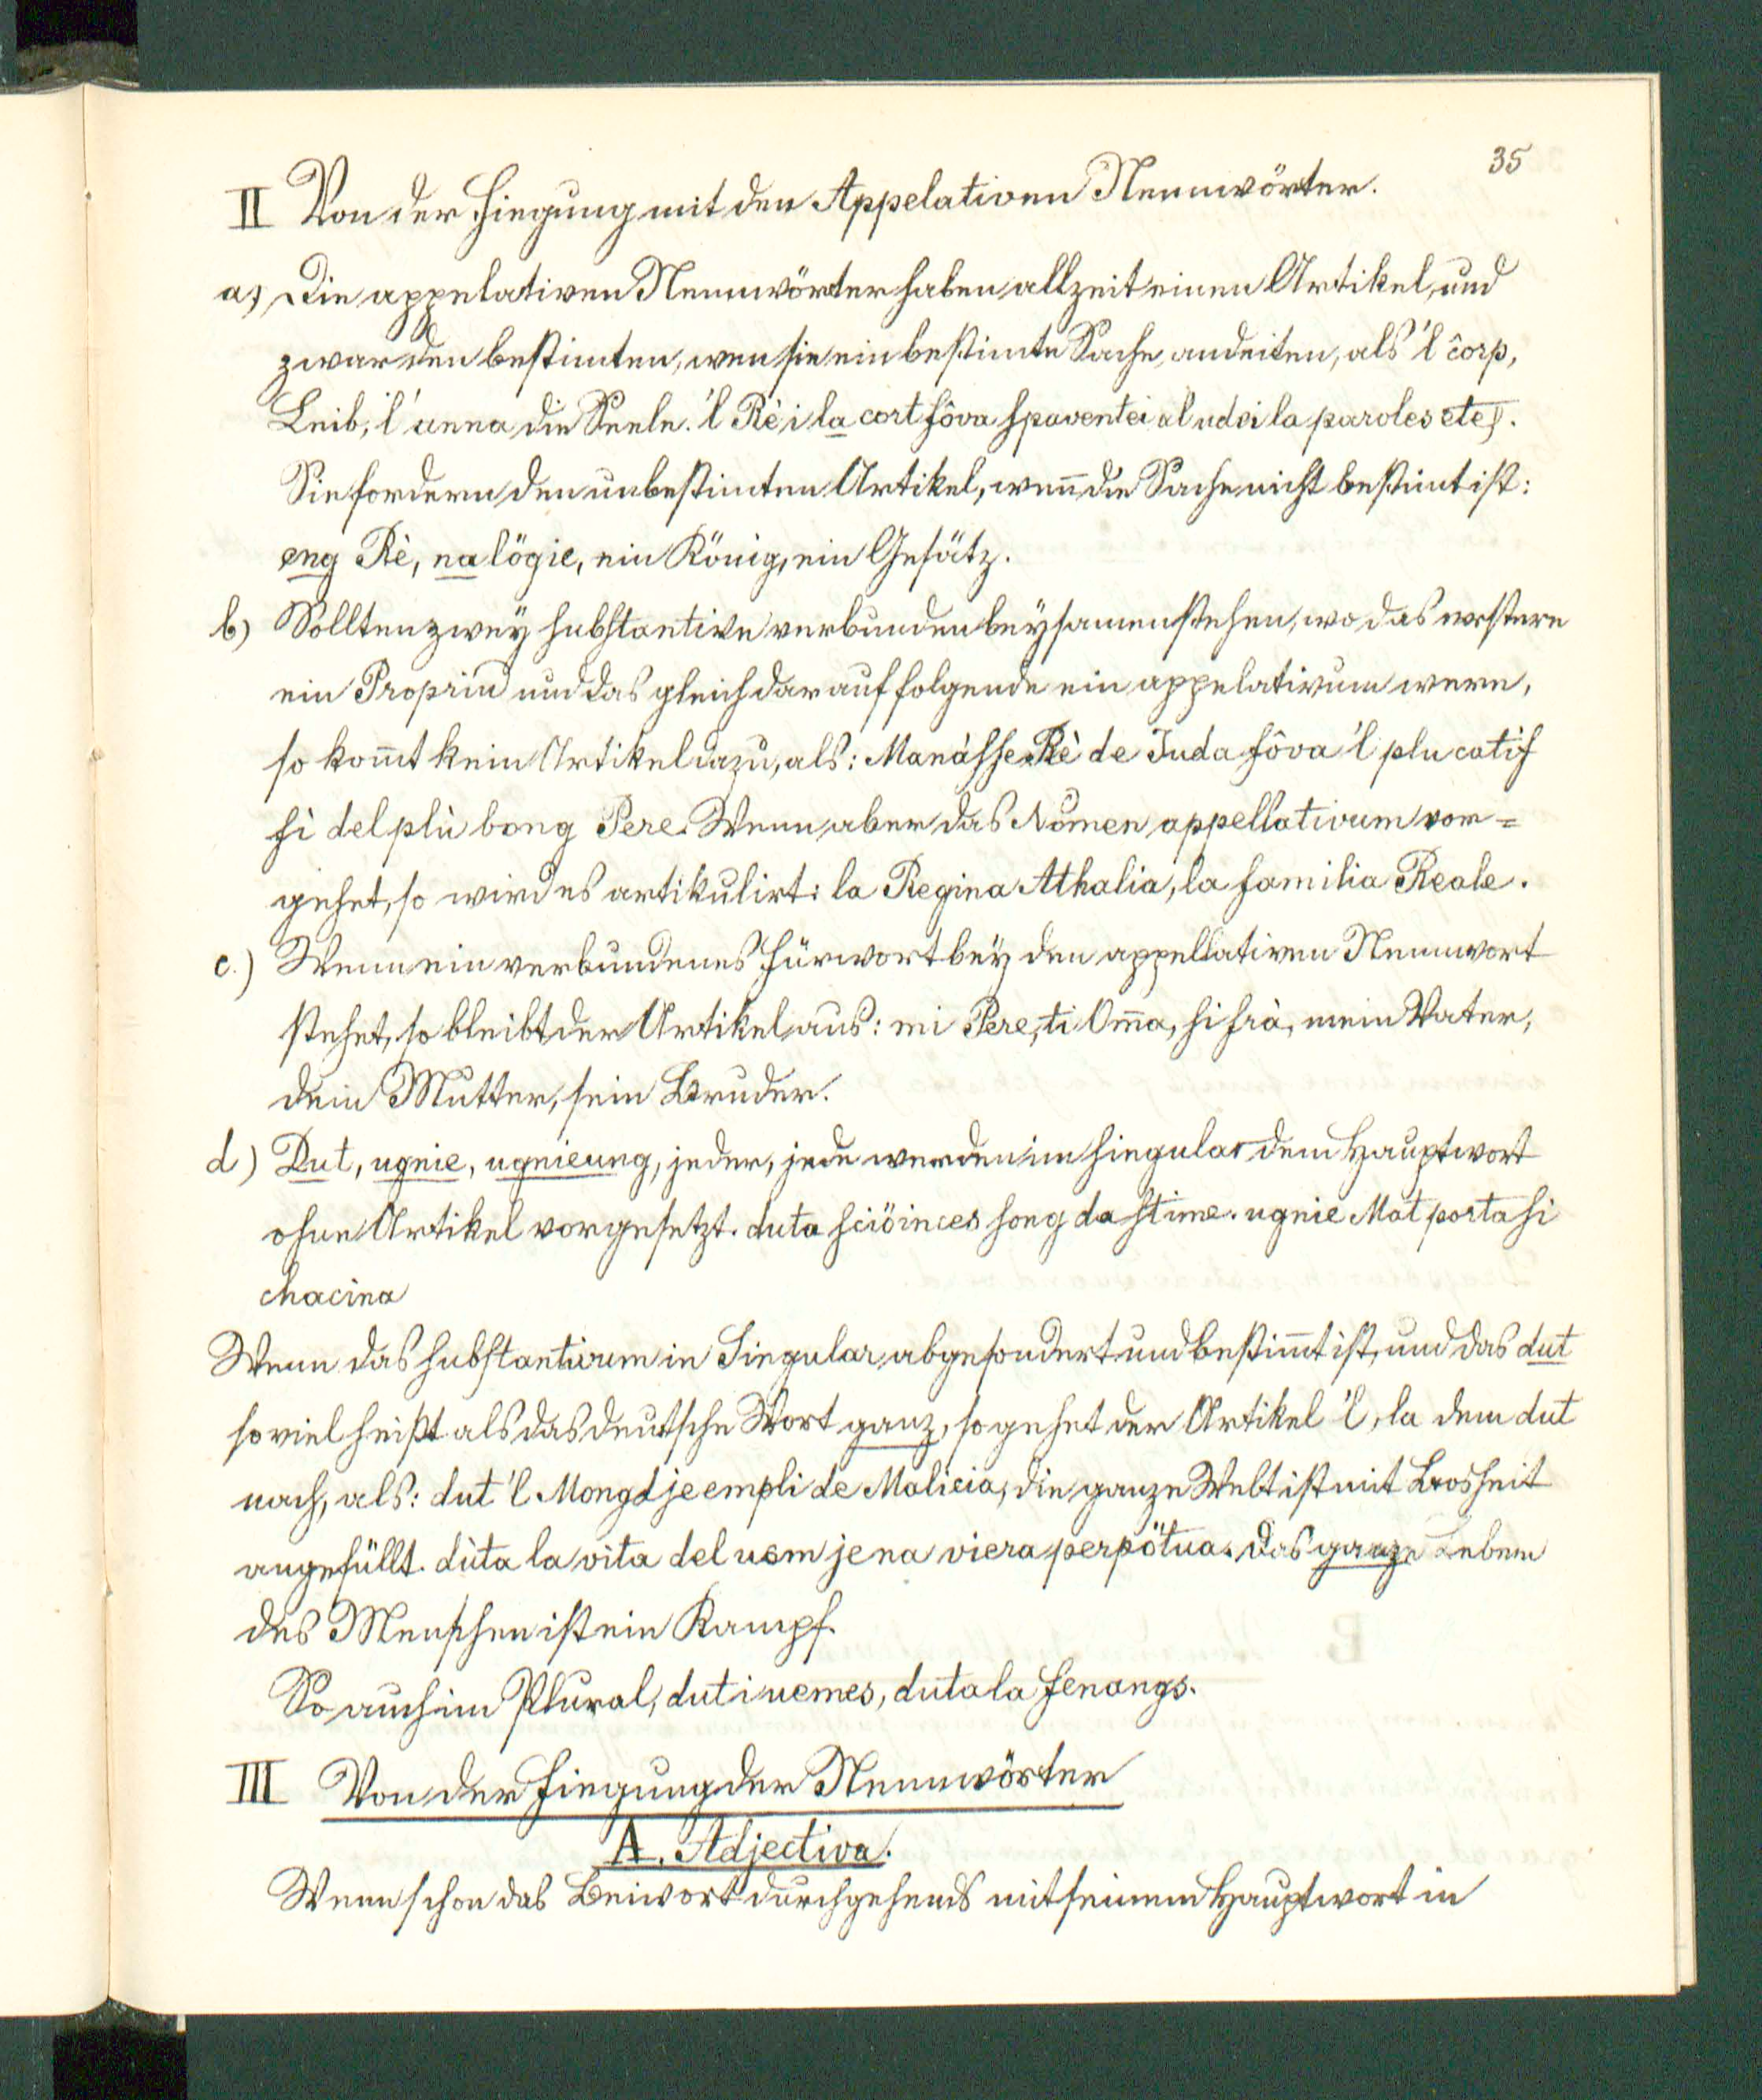 35
II Von der Fiegung mit den Appelativen Nennwörter.
a) Die appelativen Nennwörter haben allzeit einen Artikel, und
zwar den bestimten, wen sie ein bestimte Sache, andeiten, als 'l côrp,
Leib, l'anna die Seele. 'l Rè i la cort fôva spaventei al udoi la paroles etc).
Sie fordern den unbestimten Artikel, weñ die Sache nicht bestimt ist:
eng Rè, na lögie, ein König, ein Gesätz.
b) Sollten zwey substantive verbunden beysamen stehen, wo das erstere
ein Propriū und das gleich darauf folgende ein appelativum were,
so kom̄t kein Artikel dazu, als: Manàsse Rè de Juda fôva 'l plu catif
fi del plù bong Pere. Wenn aber das Nomen appellativum vor=
gehet, so wird es artikulirt: la Regina Athalia, la familia Reale.
c.) Wenn ein verbundenes Fürwort bey den appellativen Nennwort
stehet, so bleibt der Artikel aus: mi Pere, ti Om̄a, si frà, mein Vater,
dein Mutter, sein Bruder.
d) Dut, ugnie, ugnieung, jeder, jede werden im singular dem Hauptwort
ohne Artikel vorgesetzt. duta sciöinces song da stime. ugnie Mat porta si
chacina
Wenn das substantivum in Singular abgesondert und bestim̄t ist, und das dut
so viel heißt als das deutsche Wort ganz, so gehet der Artikel 'l, la dem dut
nach, als: dut 'l Mongd je empli de Malicia, die ganze Welt ist mit Bosheit
angefüllt. dùta la vita del uem je na viera perpötua. das ganze Leben
des Menschen ist ein Kampf.
So auch im Plural, dut i uemes, duta la fenangs.
III Von der Fiegung der Nennwörter
A. Adjectiva.
Wenn schon das Beiwort durchgehends mit seinem Hauptwort in